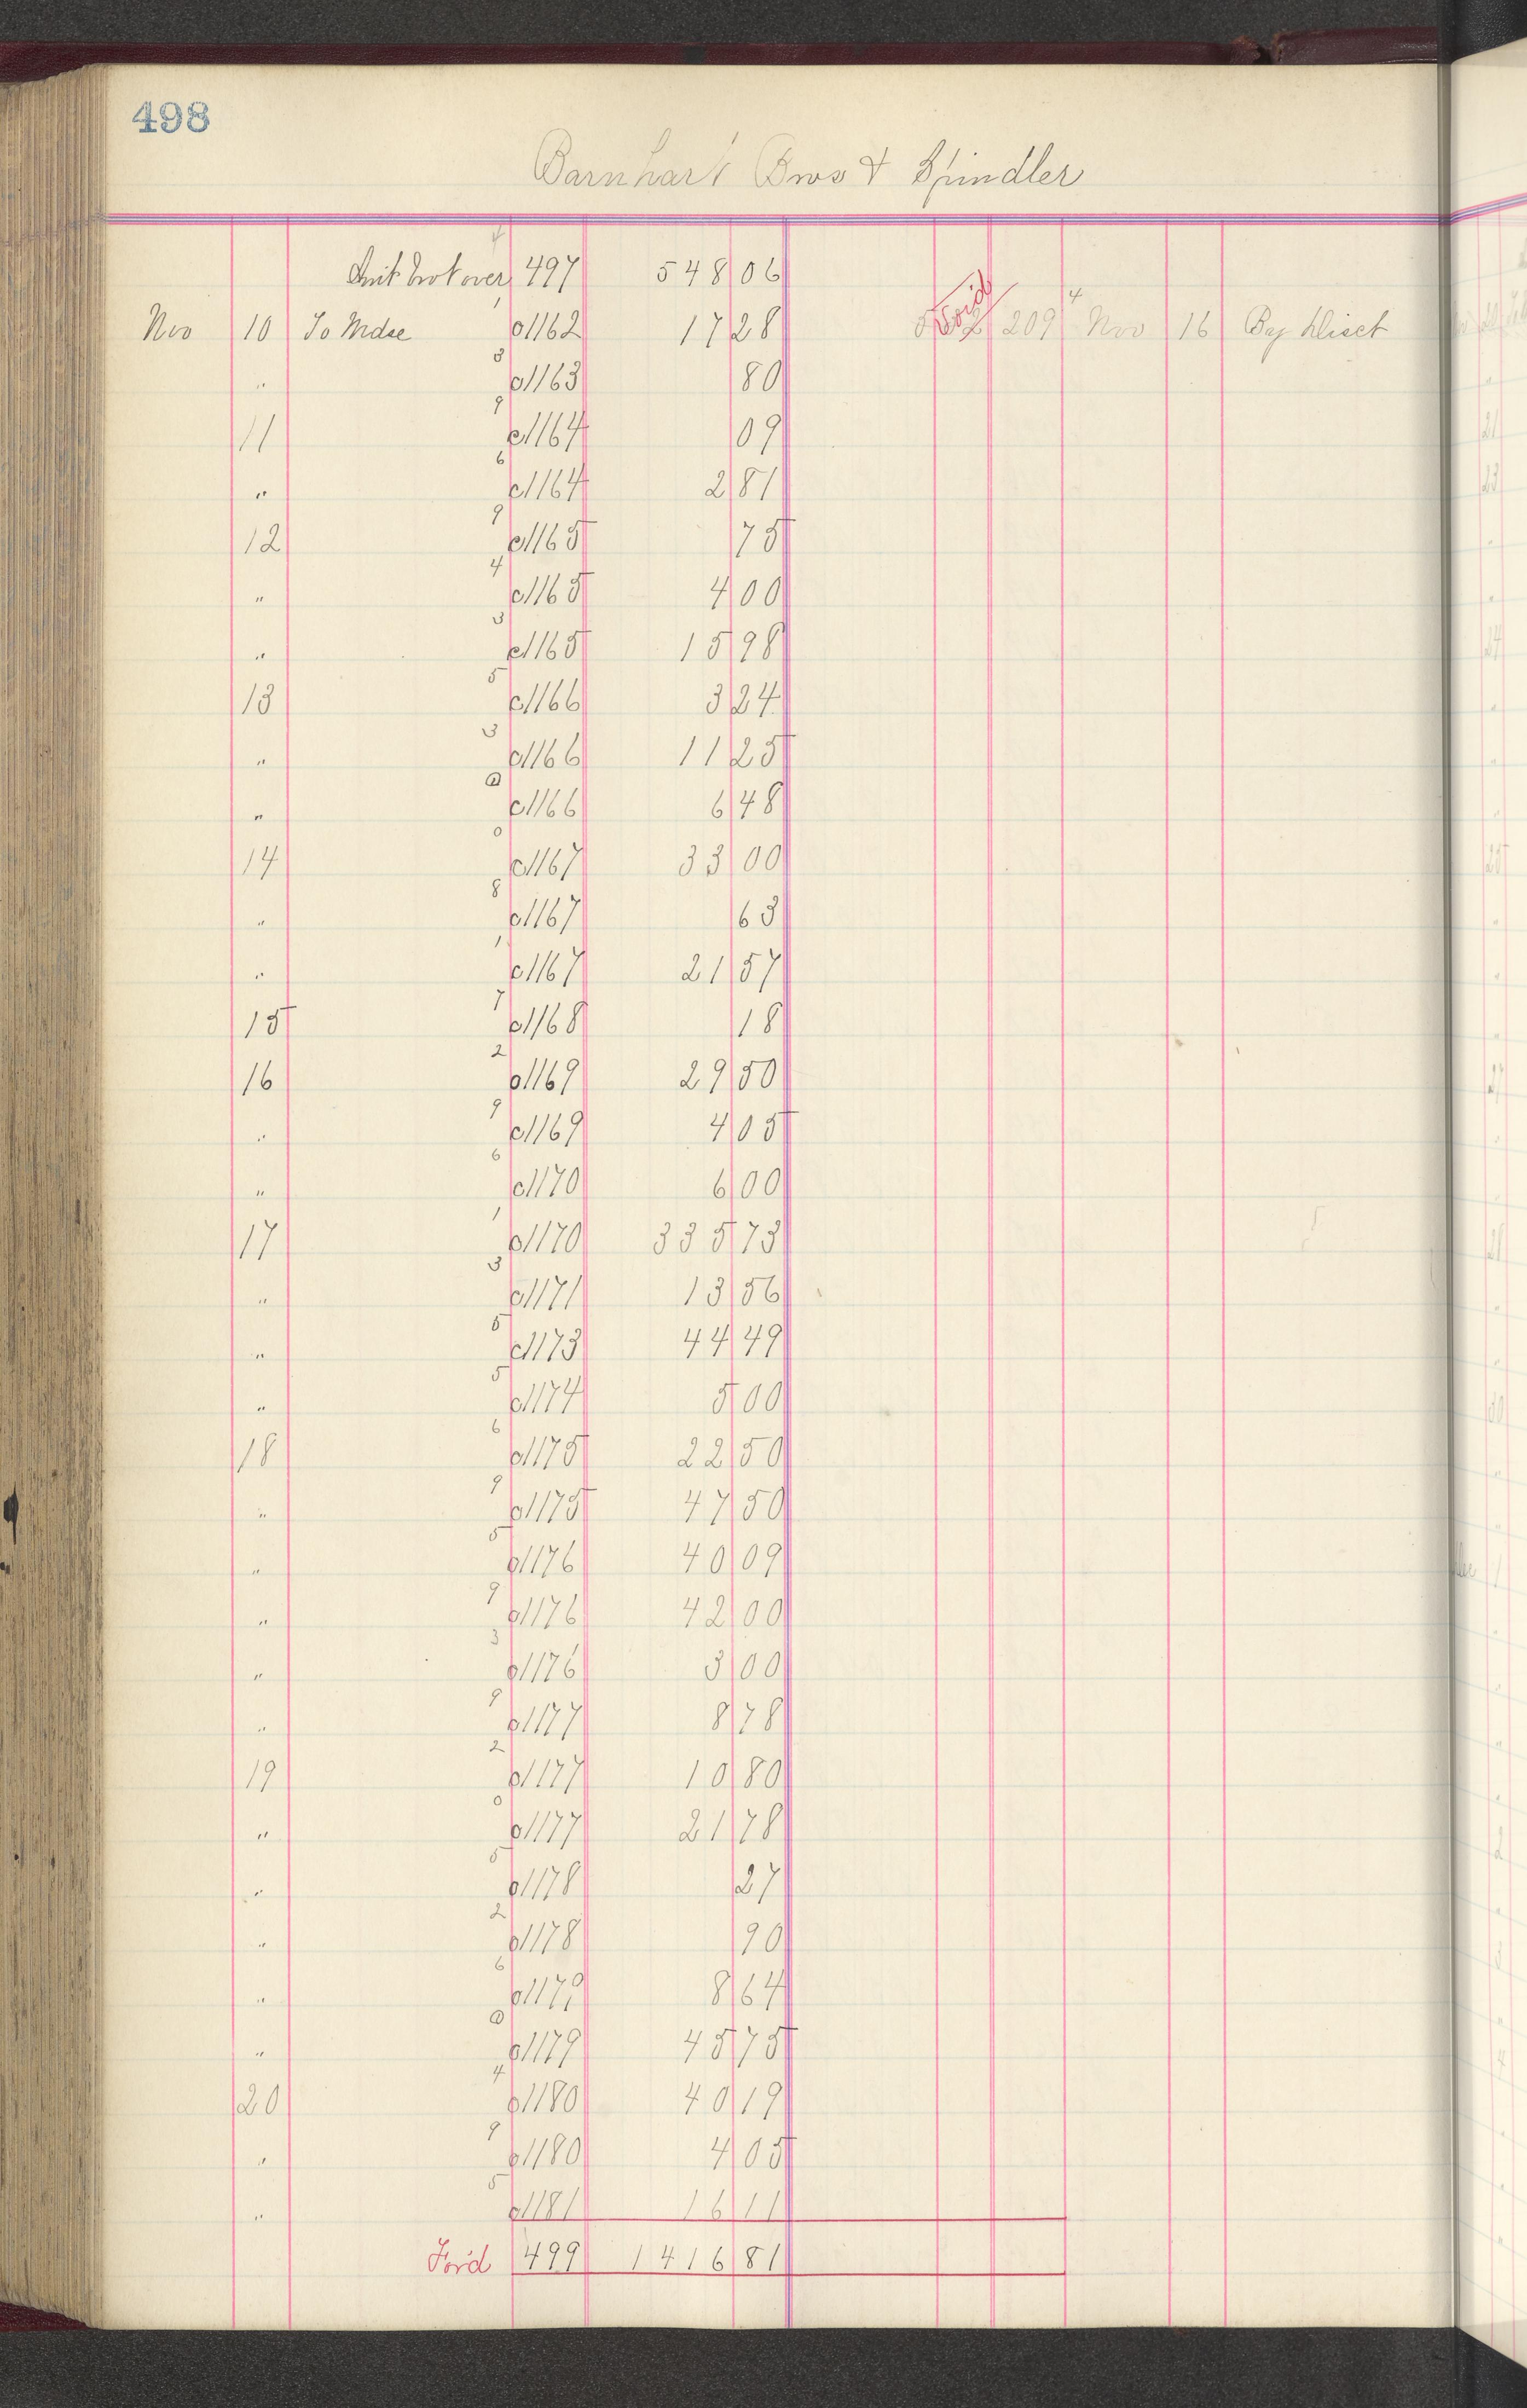 498
Barnhart Bros & Spindler
Amt brot over 497 548 06
Nov 10 To Mdse 1 c1162 17 28 Void 209 4 Nov 16 By Disct
" 3 c1163 80
11 9 c1164 09
" 6 c1164 2 81
12 9 c1165 75
" 4 c1165 4 00
" 3 c1165 15 98
13 5 c1166 3 24
" 3 c1166 11 25
" 0 c1166 6 48
14 0 c1167 33 00
" 8 c1167 63
" 1 c1167 21 57
15 7 c1168 18
16 2 c1169 29 50
" 9 c1169 4 05
" 6 c1170 6 00
17 1 c1170 335 73
" 3 c1171 13 56
" 5 c1173 44 49
" 5 c1174 5 00
18 6 c1175 22 50
" 9 c1175 47 50
" 5 c1176 40 09
" 9 c1176 42 00
" 3 c1176 3 00
" 9 c1177 8 78
19 2 c1177 10 80
" 0 c1177 21 78
" 5 c1178 27
" 2 c1178 90
" 6 c1179 8 64
" 0 c1179 45 75
20 4 c1180 40 19
" 9 c1180 4 05
" 5 c1181 16 11
For'd 499 1416 81